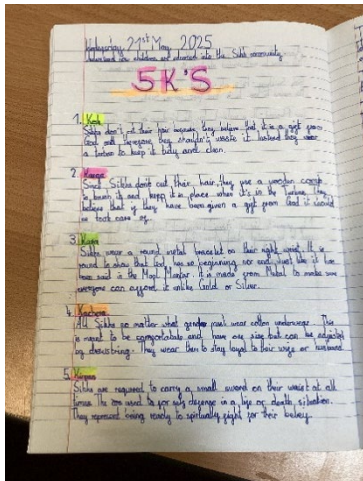 Wednesday 21st May 2025
Understand how children are welcomed into the Sikh community.
5K'S
1. Kesh
Sikhs don't cut their hair because they believe that it is a gift from
God and therefore they shouldn't waste it. Instead they wear
a turban to keep it tidy and clean.
2. Kanga
Since Sikhs don't cut their hair, they use a wooden comb
to brush it and keep it in place when it's in the Turban. They
believe that if they have been given a gift from God it should
be took care of.
3. Kara
Sikhs wear a round metal bracelet on their right wrist. It is
round to show that God has no beginning nor end, just like it has
been said in the Mool Mantar. It is made from Metal to make sure
everyone can afford it unlike Gold or Silver.
4. Kachera
All Sikhs no matter what gender must wear cotton underwear. This
is meant to be comfortable and have any size but can be adjusted
by drawstring. They wear them to stay loyal to their wife or husband.
5. Kirpan
Sikhs are required to carry a small sword on their waist at all
times. The are used to for self defense in a life or death situation.
They represent being ready to spiritually fight for their belief.